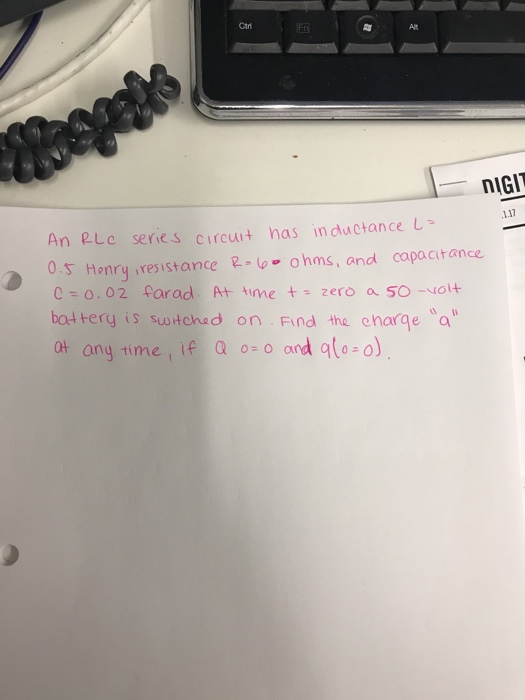 Ctrl
Fn
Alt
DIGIT
.1.17
An RLC series circuit has inductance L=
0.5 Henry, resistance R=6 ohms, and capacitance
C=0.02 farad. At time t= zero a 50-volt
battery is switched on. Find the charge "q"
at any time, if Q 0=0 and q(0=0).